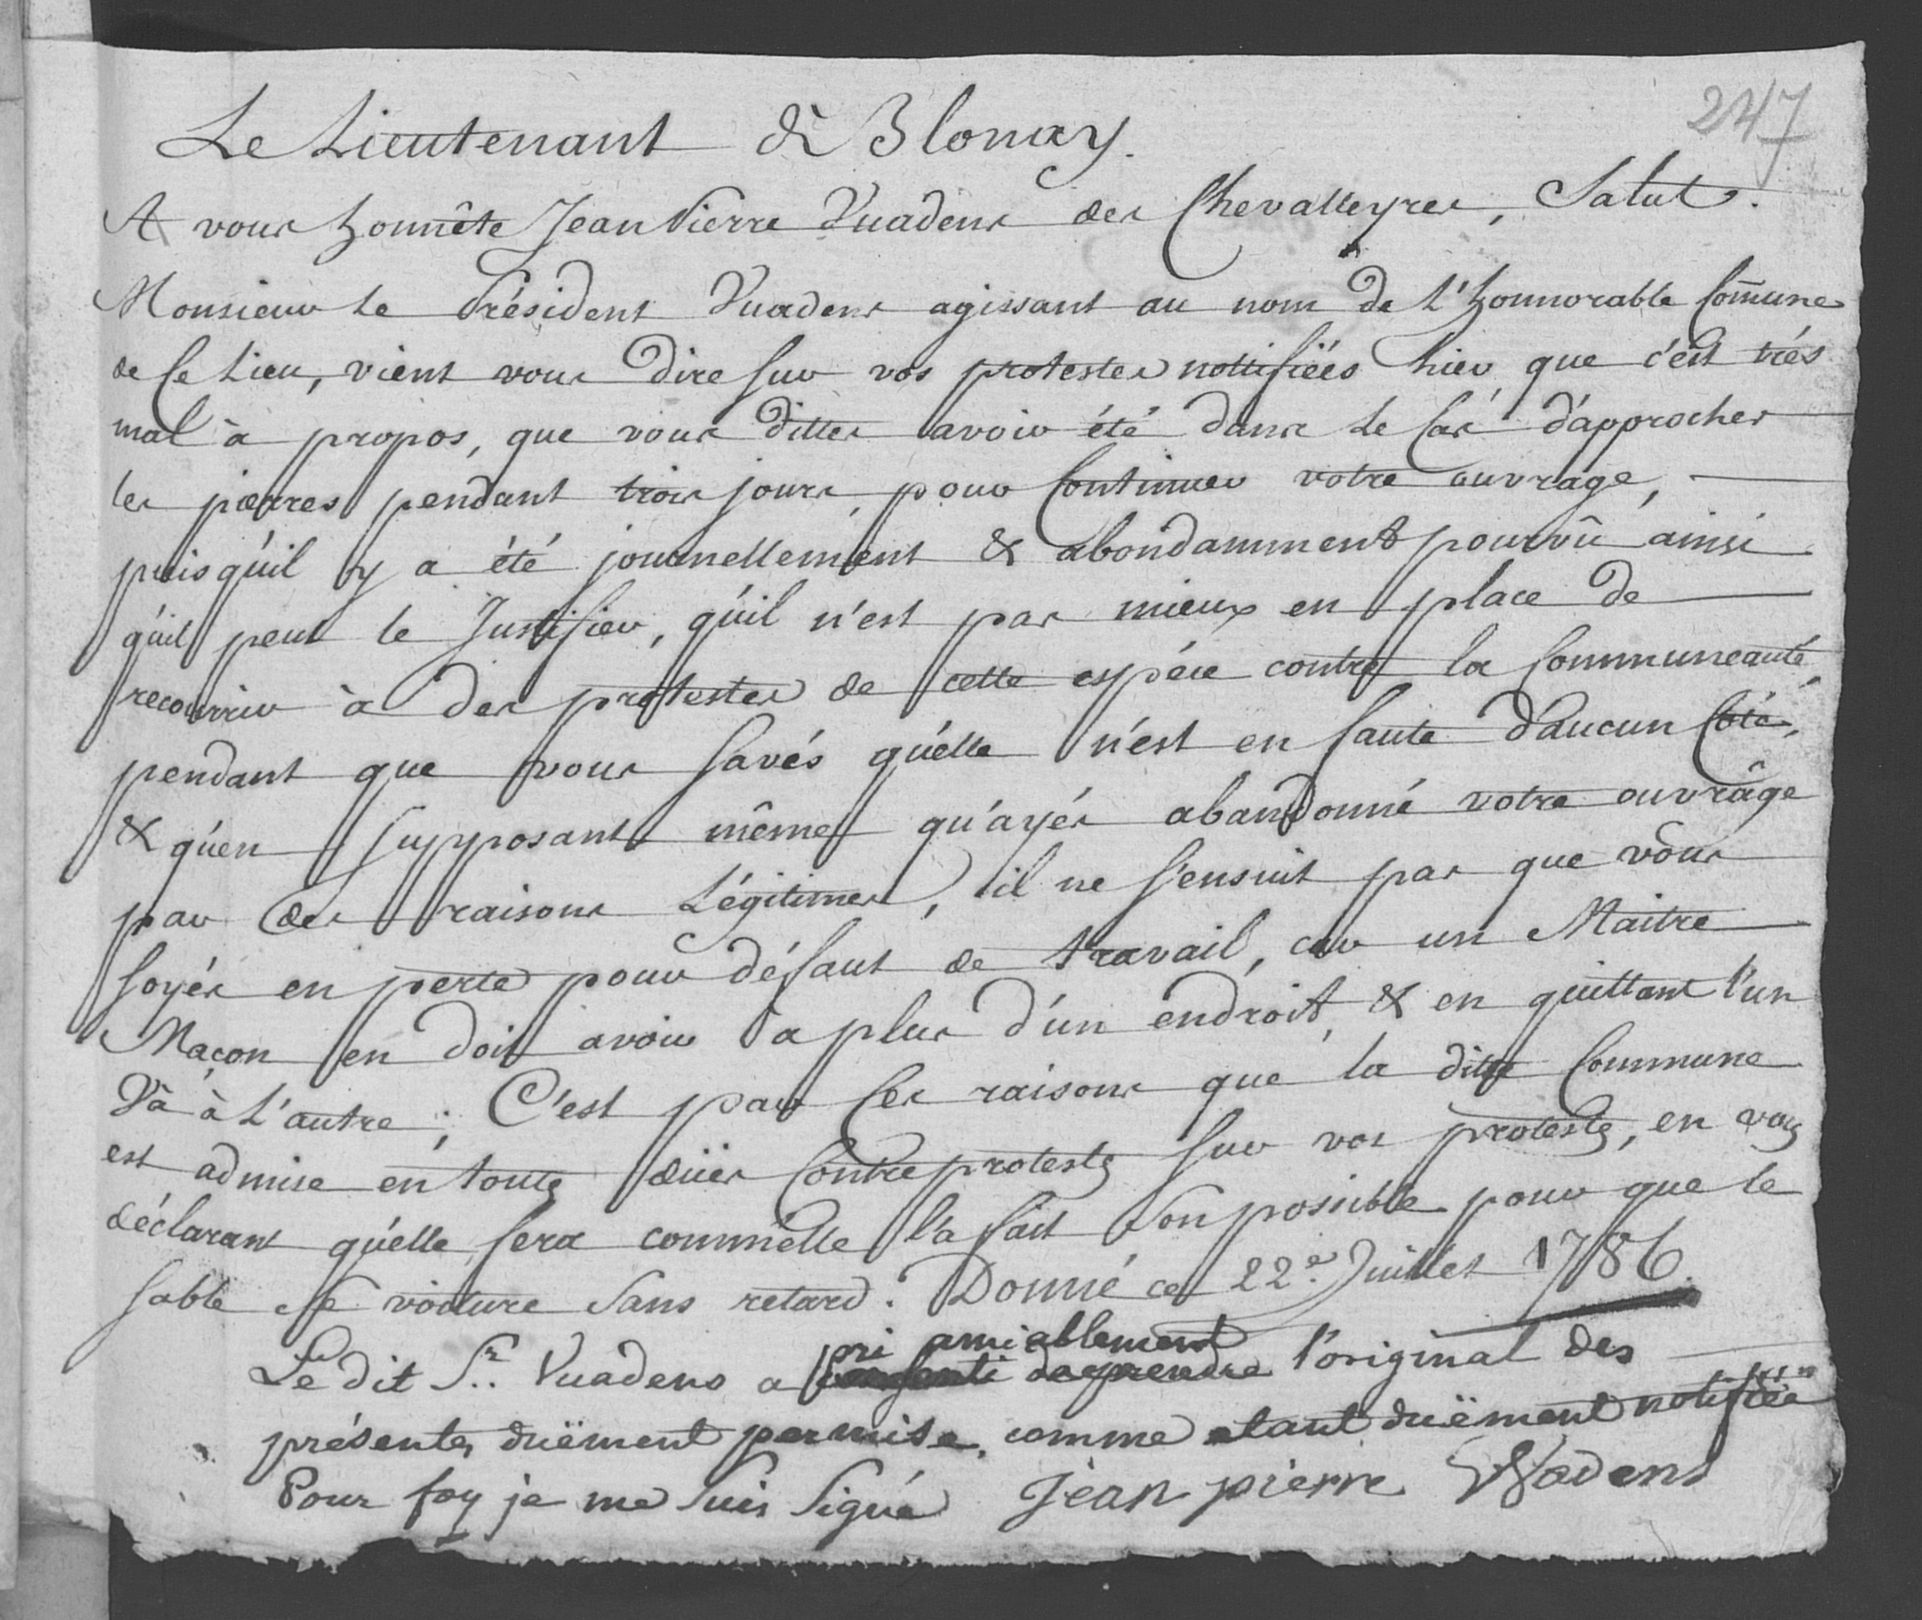 247
Le Lieutenant de Blonay.
A vous honnête Jean Pierre Vuadens des Chevalleyres, Salut.
Monsieur le Président Vuadens agissant au nom de l'honnorable Com̃une
de ce Lieu, vient vous dire sur vos protestes nottifiées hier que c'est trés
mal à propos, que vous dittes avoir été dans le Cas d'approcher
les pierres pendant trois jours, pour Continuer votre ouvrage,
puis qu'il y a été journellement & abondamment pourvû ainsi
qu'il peut le Justifier, qu'il n'est pas mieux en place de
recourrir à des protestes de cette espéce contre la Communeauté,
pendant que vous savés qu'elle n'est en faute d'aucun Côté,
& qu'en supposant même qu'ayés abandonné votre ouvrâge
par des raisons Légitimes, il ne s'ensuit pas que vous
soyés en perte pour défaut de travail, car un Maitre
Maçon en doit avoir à plus d'un endroit, & en quittant l'un
Và à L'autre; C'est par ces raisons que la ditte Commune
est admise en toutes düës Contreprotestes sur vos protestes, en vous
déclarant qu'elle fera comm'elle l'a fait son possible pour que le
sable se voiture sans retard. Donné ce 22e. Juillet 1786.
pri amiablement
Le dit Sr. Vuadens a consenti de prendre l'original des
présentes düëment permise, comme etant düëment notifiée
Pour foy je me suis signé Jean pierre Vuadens